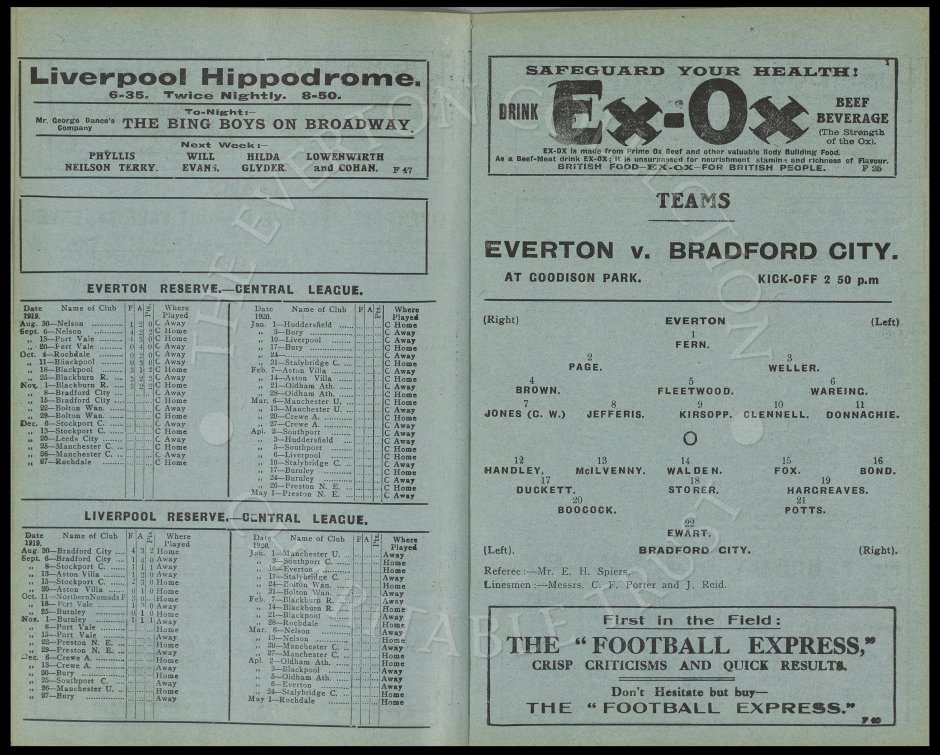 Liverpool Hippodrome.
6-35. Twice Nightly. 8-50.
To-Night:—
Mr. George Dance's Company THE BING BOYS ON BROADWAY
Next Week:—
PHYLLIS WILL HILDA LOWENWIRTH
NEILSON TERRY. EVANS. GLYDER. and COHAN. F 47
EVERTON RESERVE.—CENTRAL LEAGUE.
Date Name of Club F A Pts. Where
1919. Played
Aug. 30—Nelson 1 2 0 C Away
Sept. 6—Nelson 4 2 2 C Home
„ 13—Port Vale 4 3 0 C Home
„ 20—Port Vale 0 4 0 C Away
Oct. 4—Rochdale 0 2 0 C Away
„ 11—Blackpool 0 3 0 C Away
„ 18—Blackpool 3 1 2 C Home
„ 25—Blackburn R. C Away
Nov. 1—Blackburn R. C Home
„ 8—Bradford City C Away
„ 15—Bradford City C Home
„ 22—Bolton Wan. C Away
„ 29—Bolton Wan. C Home
Dec. 6—Stockport C. C Away
„ 13—Stockport C. C Home
„ 20—Leeds City C Away
„ 25—Manchester C. C Home
„ 26—Manchester C. C Away
„ 27—Rochdale C Home
Date Name of Club F A Pts. Where
1920. Played
Jan. 1—Huddersfield C Home
„ 3—Bury C Away
„ 10—Liverpool C Away
„ 17—Bury C Home
„ 24— C Away
„ 31—Stalybridge C. C Home
Feb. 7—Aston Villa C Away
„ 14—Aston Villa C Home
„ 21—Oldham Ath. C Away
„ 28—Oldham Ath. C Home
Mar. 6—Manchester U. C Home
„ 13—Manchester U. C Away
„ 20—Crewe A. C Home
„ 27—Crewe A. C Away
Apl. 2—Southport C Away
„ 3—Huddersfield C Away
„ 5—Southport C Home
„ 6—Liverpool C Home
„ 10—Stalybridge C. C Away
„ 17—Burnley C Home
„ 24—Burnley C Away
„ 26—Preston N. E. C Home
May 1—Preston N. E. C Away
LIVERPOOL RESERVE.—CENTRAL LEAGUE.
Date Name of Club F A Pts. Where
1919. Played
Aug. 30—Bradford City 4 3 2 Home
Sept. 6—Bradford City 1 4 0 Away
„ 8—Stockport C. 1 1 1 Away
„ 13—Aston Villa 1 2 0 Away
„ 15—Stockport C. 2 3 0 Home
„ 20—Aston Villa 0 1 0 Home
Oct. 11—Northern Nomads F 3 0 Home
„ 18—Port Vale Away
„ 25—Burnley 0 1 0 Home
Nov. 1—Burnley 1 1 1 Away
„ 8—Port Vale Home
„ 15—Port Vale Away
„ 22—Preston N. E. Home
„ 29—Preston N. E. Away
Dec. 6—Crewe A. Home
„ 13—Crewe A. Away
„ 20—Bury Home
„ 25—Southport C. Away
„ 26—Manchester U. Home
„ 27—Bury Away
Date Name of Club F A Pts. Where
1920. Played
Jan. 1—Manchester U. Away
„ 3—Southport C. Home
„ 10—Everton Home
„ 17—Stalybridge C. Away
„ 24—Bolton Wan. Home
„ 31—Bolton Wan. Away
Feb. 7—Blackburn R. Away
„ 14—Blackburn R. Home
„ 21—Blackpool Away
„ 28—Rochdale Home
Mar. 6—Nelson Away
„ 13—Nelson Home
„ 20—Manchester C. Away
„ 27—Manchester C. Home
Apl. 2—Oldham Ath. Away
„ 3—Blackpool Home
„ 5—Oldham Ath. Home
„ 6—Everton Away
„ 24—Stalybridge C. Home
May 1—Rochdale Home
1
SAFEGUARD YOUR HEALTH!
DRINK Ex-Ox BEEF BEVERAGE
(The Strength of the Ox).
EX-OX is made from Prime Ox Beef and other valuable Body Building Food.
As a Beef-Meat drink EX-OX; it is unsurpassed for nourishment stamina and richness of Flavour.
BRITISH FOOD—EX-OX—FOR BRITISH PEOPLE. F 25
TEAMS
EVERTON v. BRADFORD CITY.
AT GOODISON PARK. KICK-OFF 2 50 p.m
(Right) EVERTON (Left)
1
FERN.
2 3
PAGE. WELLER.
4 5 6
BROWN. FLEETWOOD. WAREING.
7 8 9 10 11
JONES (C. W.) JEFFERIS. KIRSOPP. CLENNELL. DONNACHIE.
O
12 13 14 15 16
HANDLEY. McILVENNY. WALDEN. FOX. BOND.
17 18 19
DUCKETT. STORER. HARGREAVES.
20 21
BOOCOCK. POTTS.
22
EWART.
(Left). BRADFORD CITY. (Right).
Referee:—Mr. E. H. Spiers,
Linesmen:—Messrs. C. F. Porter and J. Reid.
First in the Field:
THE "FOOTBALL EXPRESS,"
CRISP CRITICISMS AND QUICK RESULTS.
Don't Hesitate but buy—
THE "FOOTBALL EXPRESS."
F 60
THE EVERTON COLLECTION CHARITABLE TRUST